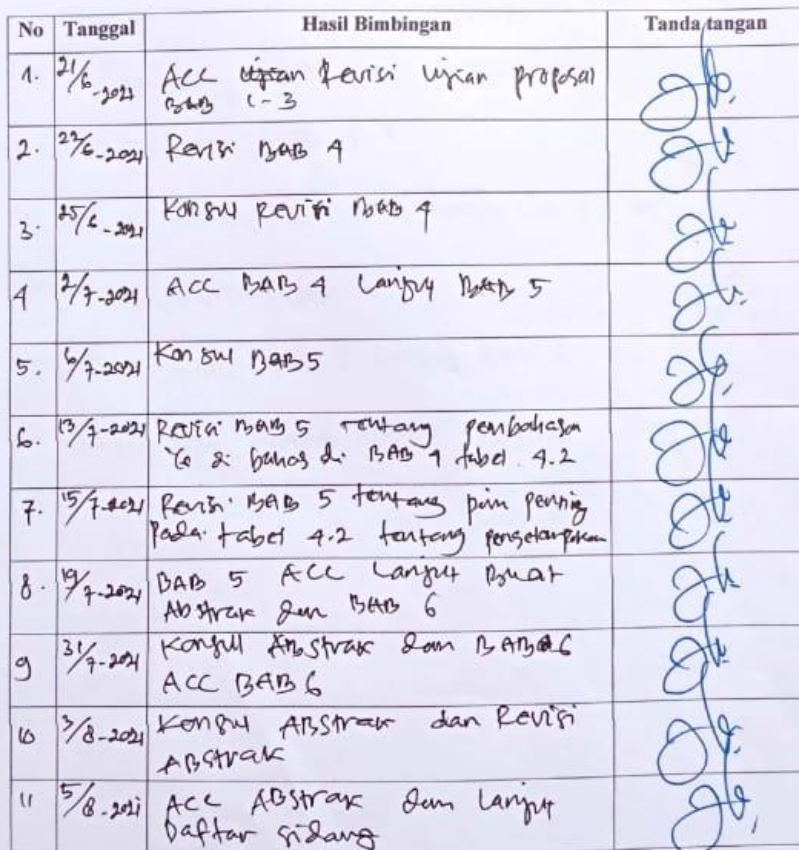 No Tanggal Hasil Bimbingan Tanda tangan
1. 21/6-2021 ACC Revisi Ujian proposal
BAB 1-3
2. 22/6-2021 Revisi BAB 4
3. 25/6-2021 Konsul Revisi BAB 4
4 2/7-2021 ACC BAB 4 Lanjut BAB 5
5. 6/7-2021 Konsul BAB 5
6. 13/7-2021 Revisi BAB 5 tentang pembahasan
yg di bahas di BAB 4 tabel 4.2
7. 15/7-2021 Revisi BAB 5 tentang poin penting
Pada tabel 4.2 tentang
8. 19/7-2021 BAB 5 ACC Lanjut Buat
Abstrak dan BAB 6
9 31/7-2021 Konsul Abstrak dan BAB 6
ACC BAB 6
10 3/8-2021 Konsul ABStrak dan Revisi
ABStrak
11 5/8-2021 ACC ABStrak dan Lanjut
Daftar sidang